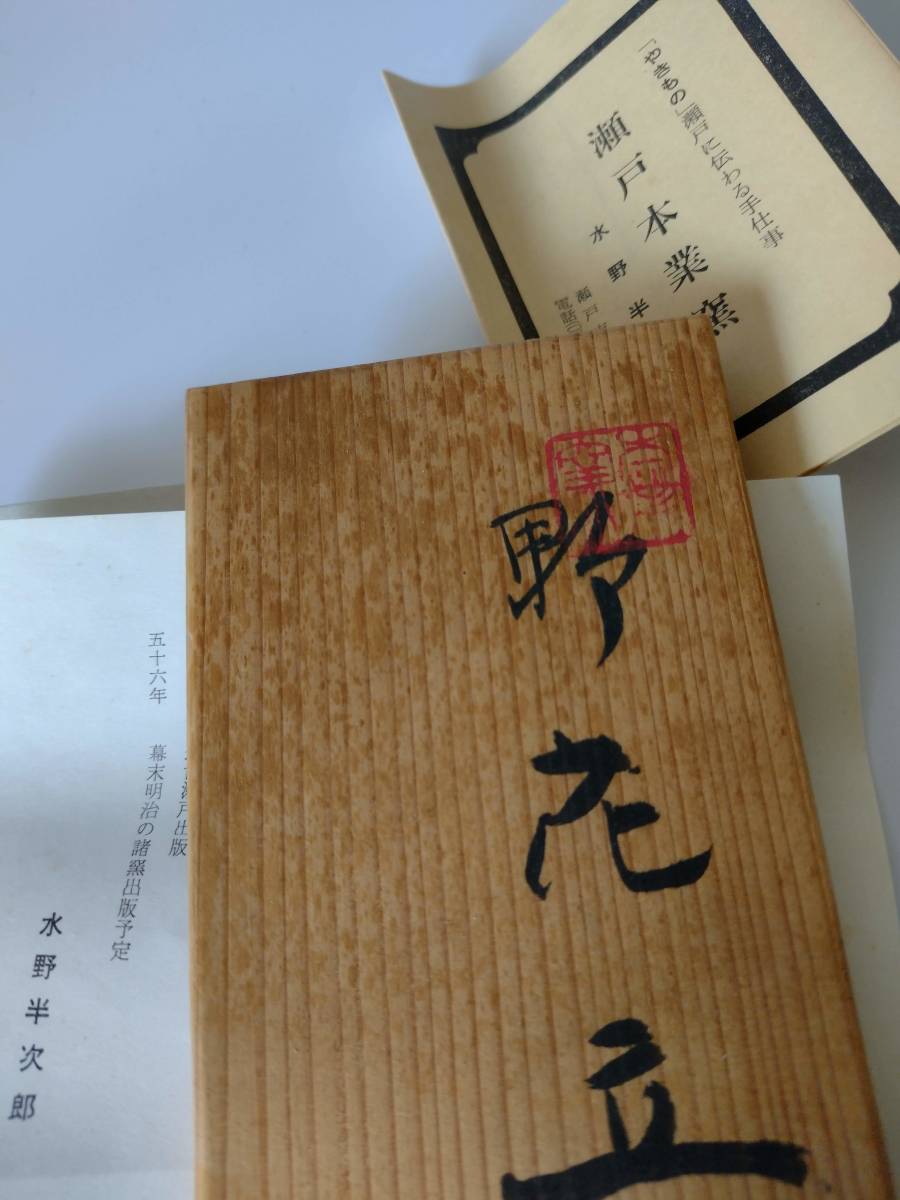 「やきもの」瀬戸に伝わる手仕事
瀬戸本業窯
水野半
瀬戸
電話
野花立
瀬戸出版
五十六年 幕末明治の諸窯出版予定
水野半次郎